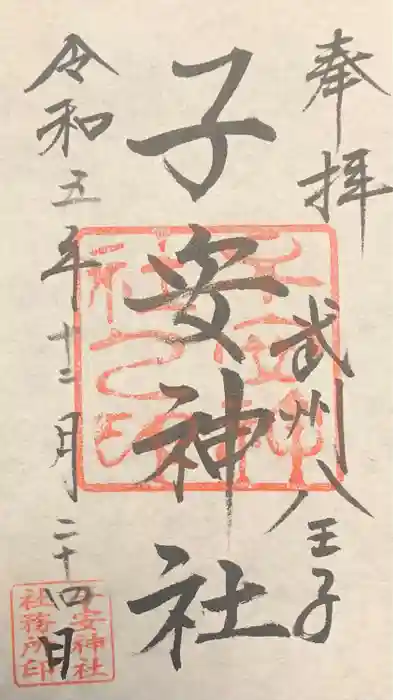 奉拝
武州八王子
子安神社
令和五年十二月二十四日
子安神社
社務所印